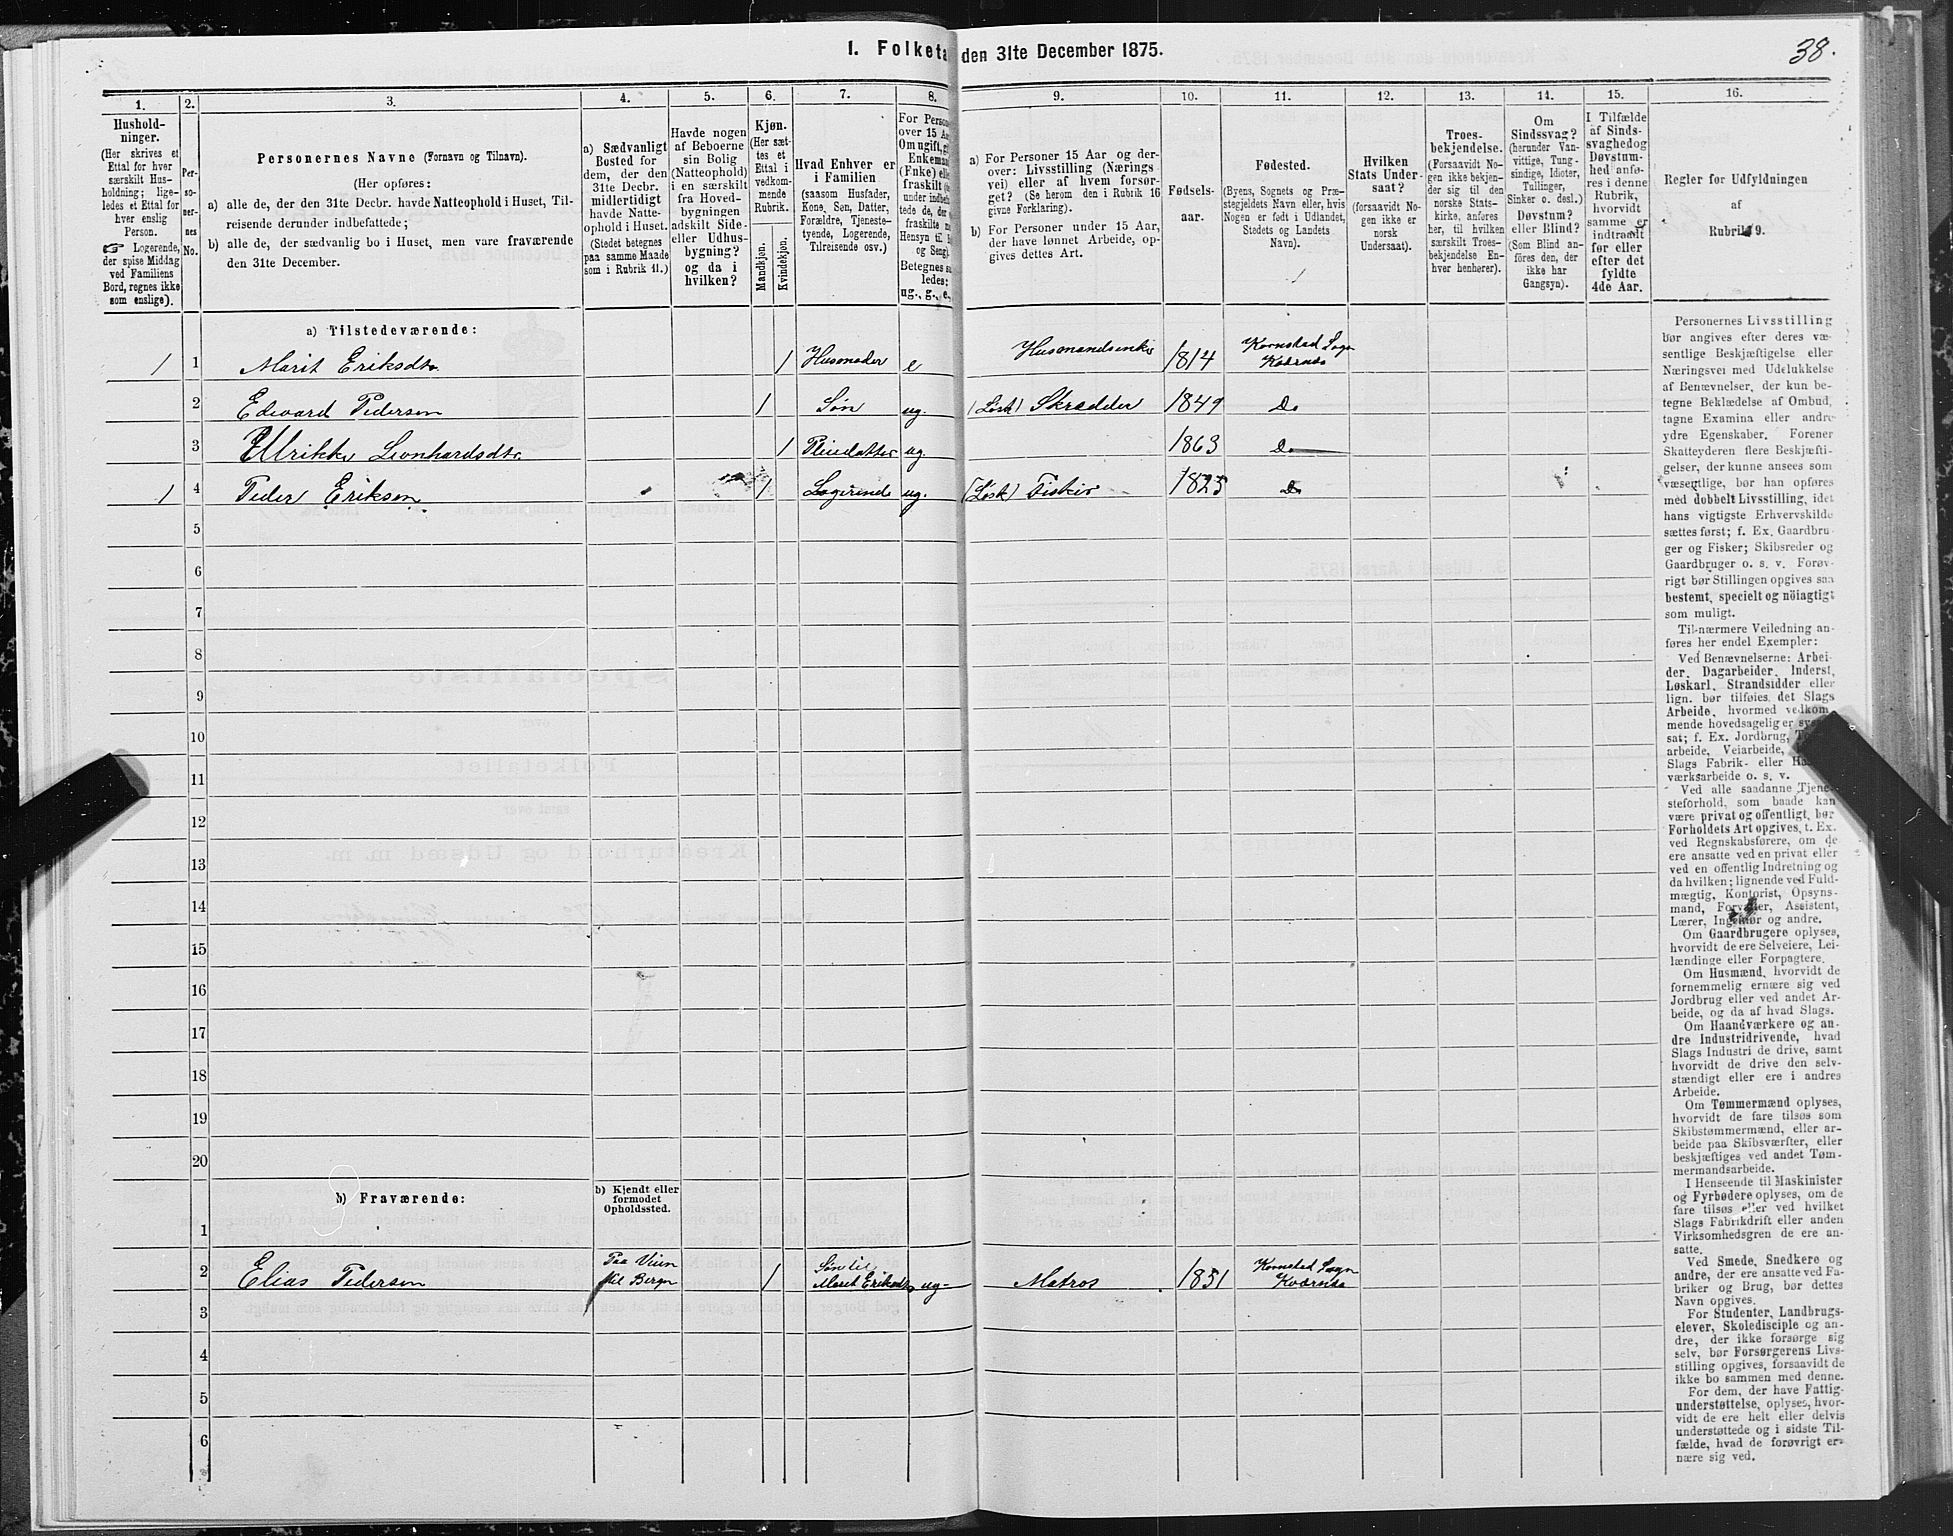 I. Folketa den 31te December 1875.
38.
1.
2.
3.
4.
5.
6.
7.
8.
9.
10.
11.
12.
13.
14.
15.
16.
Hushold-
ninger.
(Her skrives et
Ettal for hver
særskilt Hus-
holdning; lige-
ledes et Ettal for
hver enslig
Person.
☞ Logerende,
der spise Middag
ved Familiens
Bord, regnes ikke
som enslige).
Per-
so-
ner-
nes
No.
Personernes Navne (Fornavn og Tilnavn).
(Her opføres:
a) alle de, der den 31te Decbr. havde Natteophold i Huset, Til-
reisende derunder indbefattede;
b) alle de, der sædvanlig bo i Huset, men vare fraværende
den 31te December.
a) Sædvanligt
Bosted for
dem, der den
31te Decbr.
midlertidigt
havde Natte-
ophold i Huset.
(Stedet betegnes
paa samme Maade
som i Rubrik 11.)
Havde nogen
af Beboerne
sin Bolig
(Natteophold)
i en særskilt
fra Hoved-
bygningen
adskilt Side-
eller Udhus-
bygning?
og da i
hvilken?
Kjøn.
(Her sæt-
tes et
Ettal i
vedkom-
mende
Rubrik.
Mandkjøn.
Kvindekjøn.
Hvad Enhver er
i Familien
(saasom Husfader,
Kone, Søn, Datter,
Forældre, Tjeneste-
tyende, Logerende,
Tilreisende osv.)
For Persone
over 15 Aa
Om ugift, gi
Enkeman
(Enke) elle
fraskilt (he
under indbefa
tede de, der
fraskilte m
Hensyn til B
og Seng).
Betegnes sa
ledes:
ug., g., e.,
a) For Personer 15 Aar og der-
over: Livsstilling (Nærings
vei) eller af hvem forsør-
get? (Se herom den i Rubrik 16
givne Forklaring).
b) For Personer under 15 Aar,
der have lønnet Arbeide, op-
gives dettes Art.
Fødsels-
aar.
Fødested.
(Byens, Sognets og Præ-
stegjeldets Navn eller, hvis
Nogen er født i Udlandet,
Stedets og Landets
Navn).
Hvilken
Stats Under-
saat?
(forsaavidt No-
gen ikke er
norsk
Undersaat).
Troes-
bekjendelse.
(Forsaavidt No-
gen ikke bekjen-
der sig til den
norske Stats-
kirke, anføres
her, til hvilken
særskilt Troes-
bekjendelse En-
hver henhører).
Om
Sindssvag?
(herunder Van-
vittige, Tung-
sindige, Idioter,
Tullinger,
Sinker o. desl.)
Døvstum?
eller Blind?
(Som Blind an-
føres den, der
ikke har
Gangsyn).
I Tilfælde
af Sinds-
svaghed og
Døvstum-
hed anfø-
res i denne
Rubrik,
hvorvidt
samme er
indtraadt
før eller
efter det
fyldte
4de Aar.
Regler for Udfyldningen
af
Rubrik 9.
a) Tilstedeværende:
1 1 Marit Eriksdtr 1 Husmoder e Husmandsenke 1814 Kornstad Sogn
Kværnæs
2 Edvard Pedersen 1 Søn ug. (Løsk) Skrædder 1849 Do
3 Ulrikke Leonhardsdtr. 1 Pleiedatter ug. 1863 Do
1 4 Peder Eriksen 1 Logerende ug. (Løsk) Fisker 1825 Do
5
6
7
8
9
10
11
12
13
14
15
16
17
18
19
20
b) Fraværende:
b) Kjendt eller
formodet
Opholdssted.
1
2 Elias Pedersen Paa Veien
til Bergn 1 Søn til
Maret Eriksdtr ug- Matros 1851 Kornstad Sogn
Kværnæs
3
4
5
6
Personernes Livsstilling
bør angives efter deres væ-
sentlige Beskjæftigelse eller
Næringsvei med Udelukkelse
af Benævnelser, der kun be-
tegne Beklædelse af Ombud,
tagne Examina eller andre
ydre Egenskaber. Forener
Skatteyderen flere Beskjæfti-
gelser, der kunne ansees som
væsentlige, bør han opføres
med dobbelt Livsstilling, idet
hans vigtigste Erhvervskilde
sættes først; f. Ex. Gaardbru-
ger og Fisker; Skibsreder og
Gaardbruger o. s. v. Forøv-
rigt bør Stillingen opgives saa
bestemt, specielt og nöiagtigt
som muligt.
Til nærmere Veiledning an-
føres her endel Exempler:
Ved Benævnelserne: Arbei-
der, Dagarbeider, Inderst,
Løskarl, Strandsidder eller
lign. bør tilføies det Slags
Arbeide, hvormed vedkom-
mende hovedsagelig er syssel-
sat; f. Ex. Jordbrug,
arbeide, Veiarbeide,
Slags Fabrik- eller
værksarbeide o. s. v.
Ved alle saadanne Tjene-
steforhold, som baade kan
være privat og offentligt, bør
Forholdets Art opgives, t. Ex.
ved Regnskabsførere, om de
ere ansatte ved en privat eller
ved en offentlig Indretning og
da hvilken; lignende ved Fuld-
mægtig, Kontorist, Opsyns-
mand, Forvalter, Assistent,
Lærer, Ingeniør og andre.
Om Gaardbrugere oplyses,
hvorvidt de ere Selveiere, Lei-
lændinge eller Forpagtere.
Om Husmænd, hvorvidt de
fornemmelig ernære sig ved
Jordbrug eller ved andet Ar-
beide, og da af hvad Slags.
Om Haandværkere og an-
dre Industridrivende, hvad
Slags Industri de drive, samt
hvorvidt de drive den selv-
stændigt eller ere i andres
Arbeide.
Om Tømmermænd oplyses,
hvorvidt de fare tilsøs som
Skibstømmermænd, eller ar-
beide paa Skibsværfter, eller
beskjæftiges ved andet Tøm-
mermandsarbeide.
I Henseende til Maskinister
og Fyrbødere oplyses, om de
fare tilsøs eller ved hvilket
Slags Fabrikdrift eller anden
Virksomhedsgren de ere an-
satte.
Ved Smede, Snedkere og
andre, der ere ansatte ved Fa-
briker og Brug, bør dettes
Navn opgives.
For Studenter, Landbrugs-
elever, Skoledisciple og an-
dre, der ikke forsørge sig
selv, bør Forsørgerens Livs-
stilling opgives, forsaavidt de
ikke bo sammen med denne.
For dem, der have Fattig-
understøttelse, oplyses, hvor-
vidt de ere helt eller delvis
understøttede og i sidste Til-
fælde, hvad de forøvrigt er-
nære sig ved.